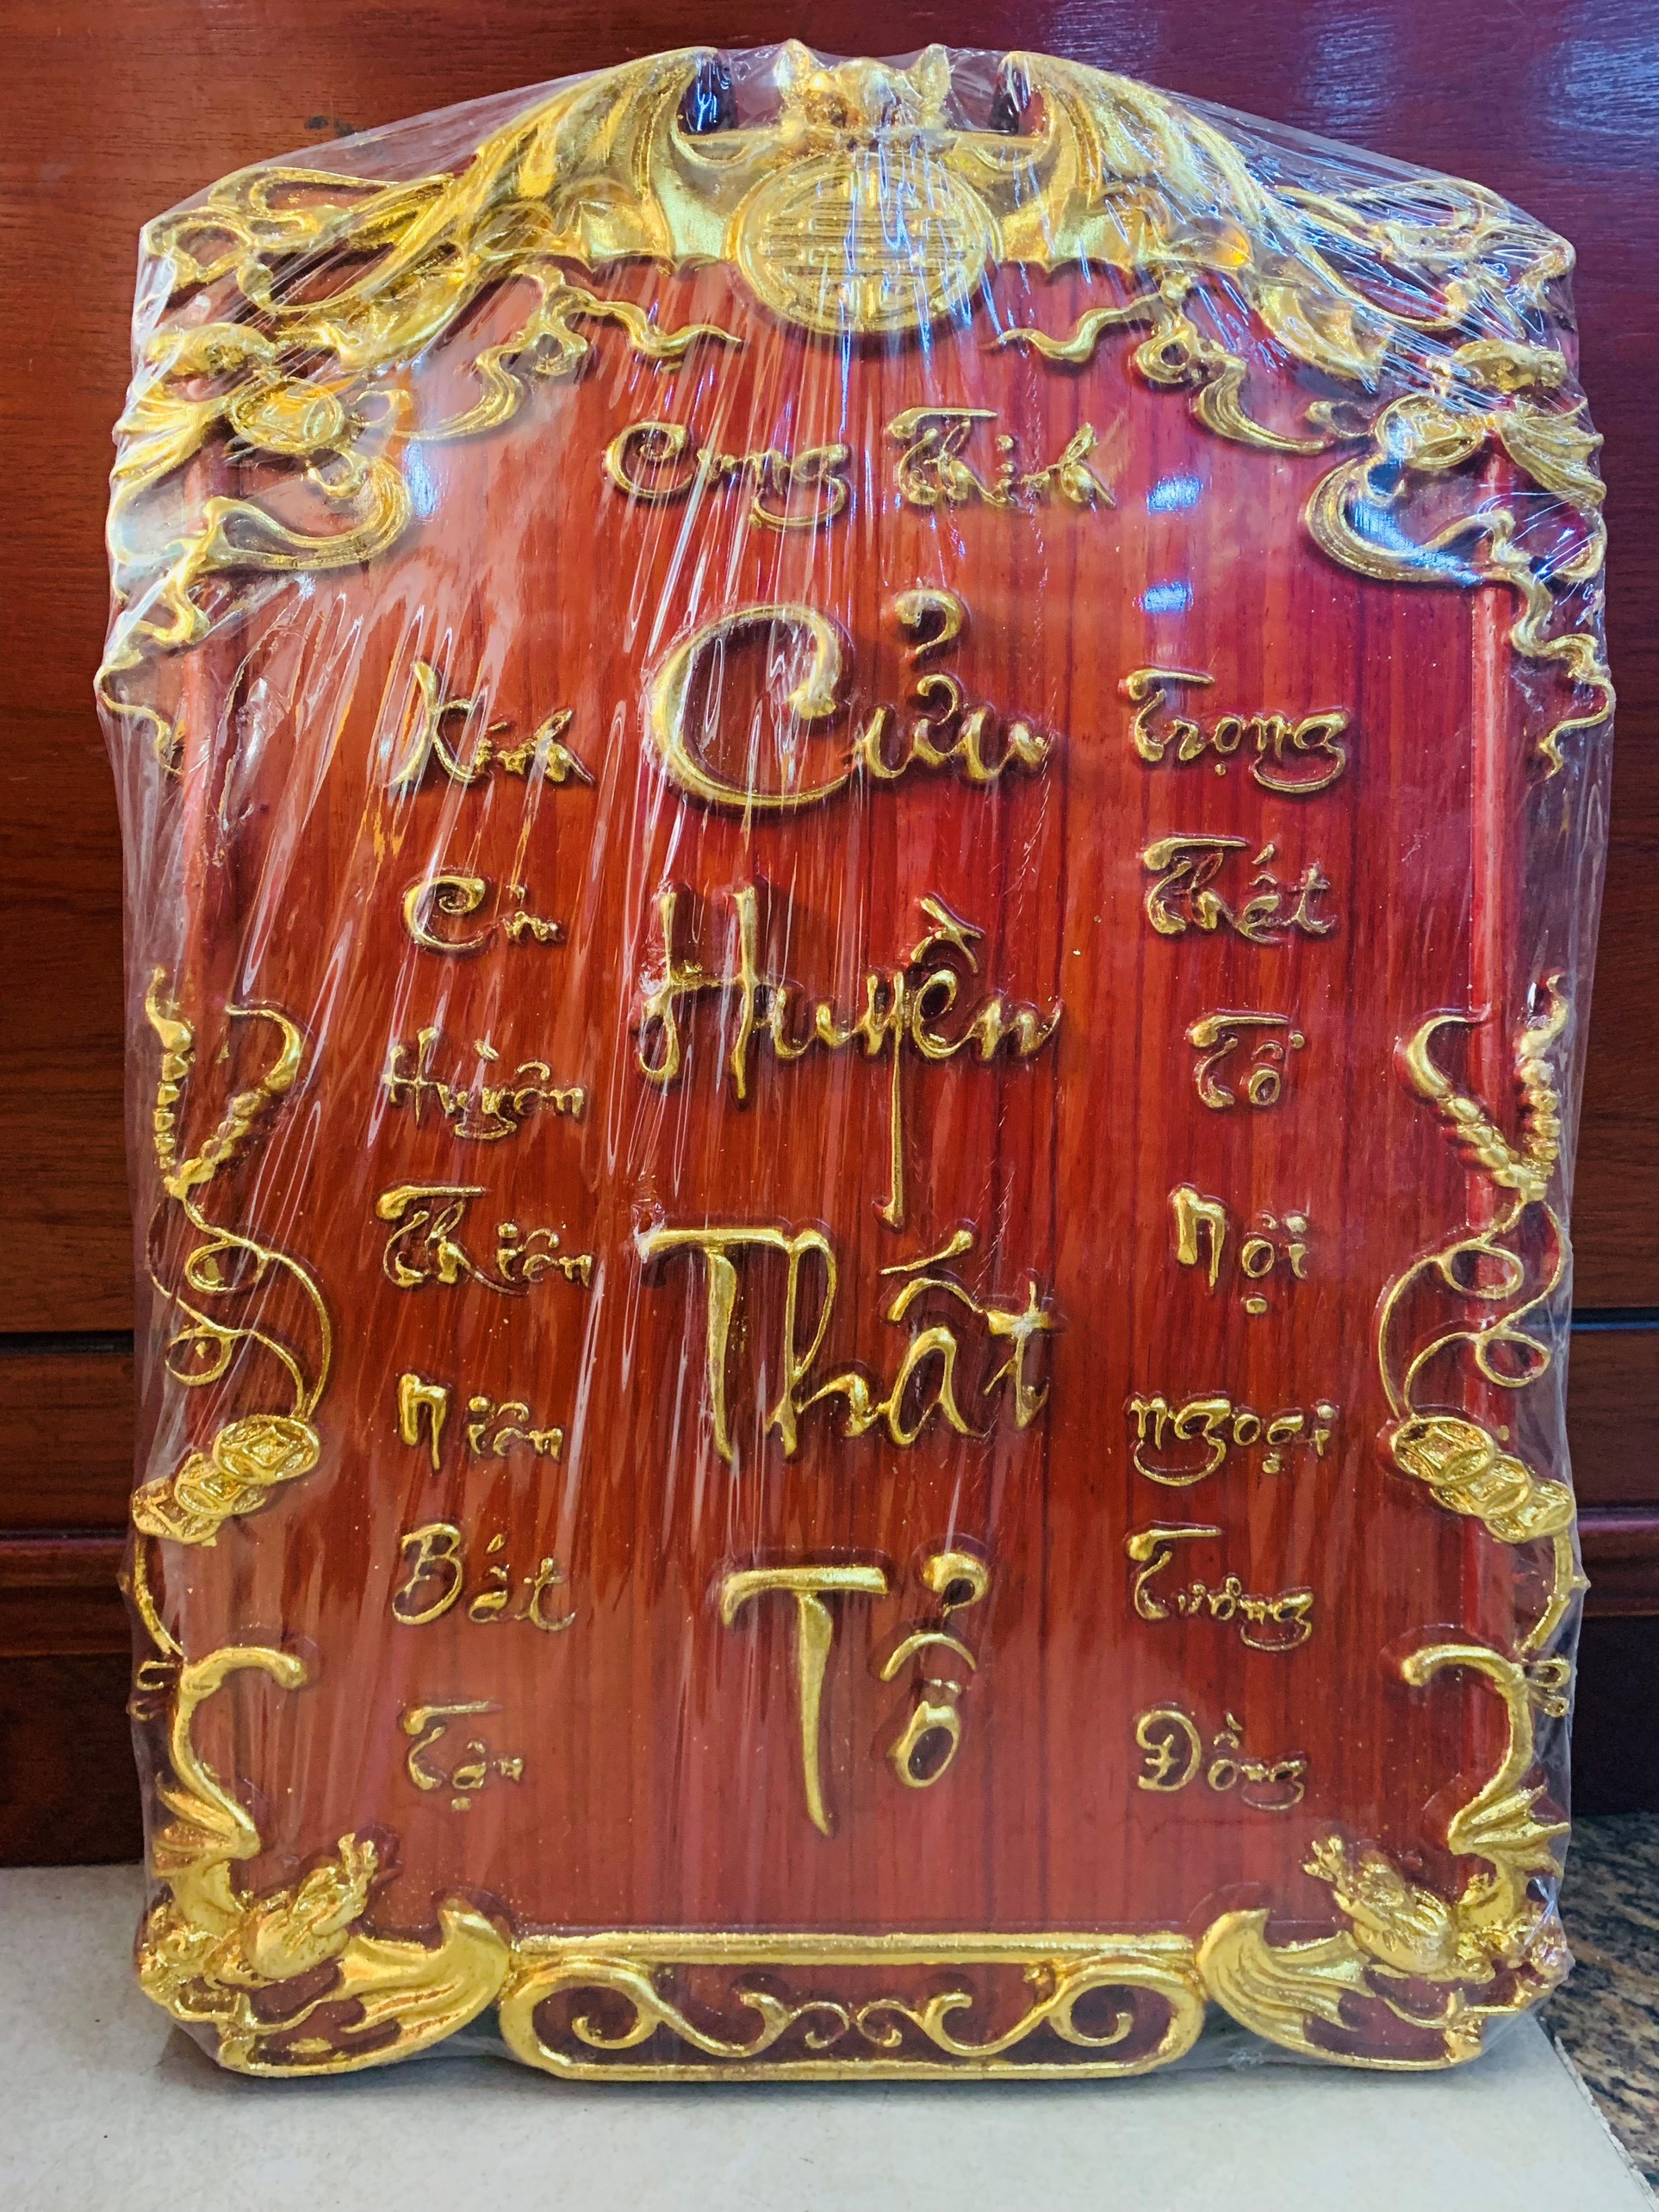 Cung Thỉnh
Kính Cửu Huyền Thiên Niên Bất Tận
Cửu Huyền Thất Tổ
Trọng Thất Tổ Nội Ngoại Tương Đồng